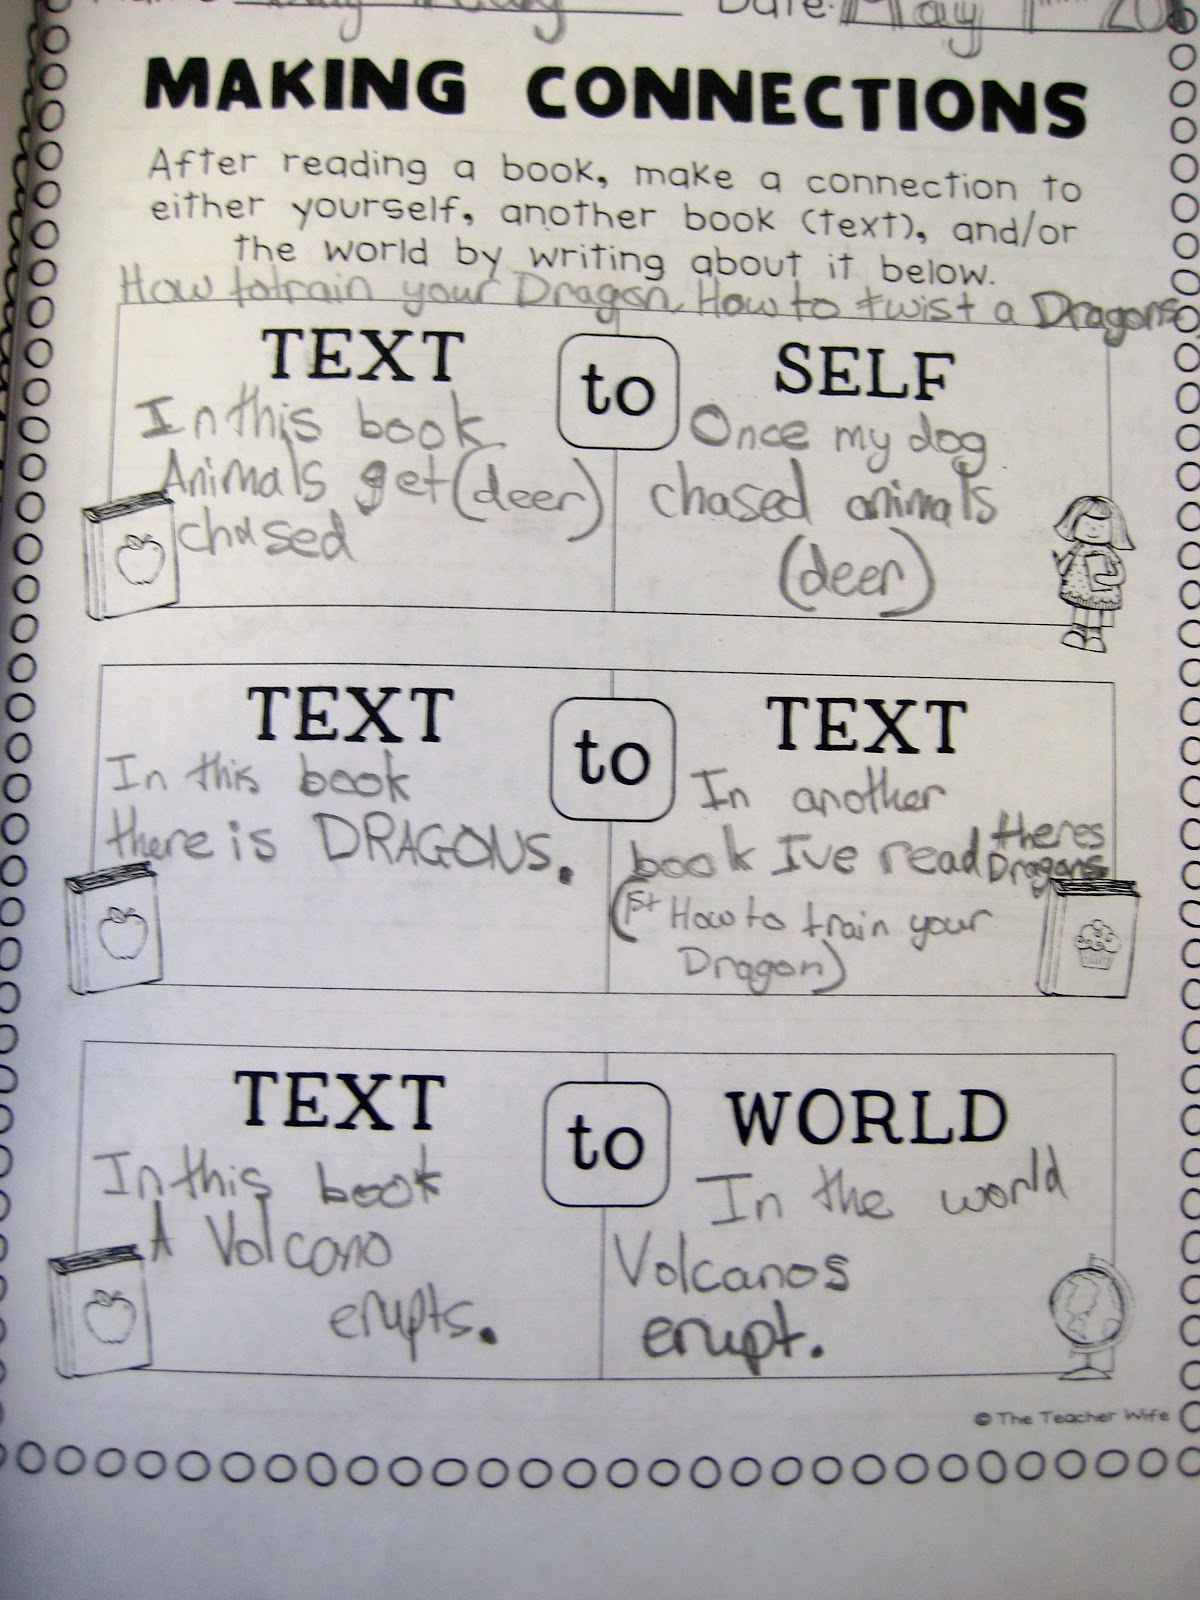 Date: May 1
MAKING CONNECTIONS
After reading a book, make a connection to
either yourself, another book (text), and/or
the world by writing about it below.
How to train your Dragon How to twist a Dragons
TEXT to SELF
In this book
Animals get (deer)
chased
Once my dog
chased animals
(deer)
TEXT to TEXT
In this book
there is DRAGONS.
In another
book I've read theres
Dragons
(1st How to train your
Dragon)
TEXT to WORLD
In this book
A Volcano
erupts.
In the world
Volcanos
erupt.
© The Teacher Wife